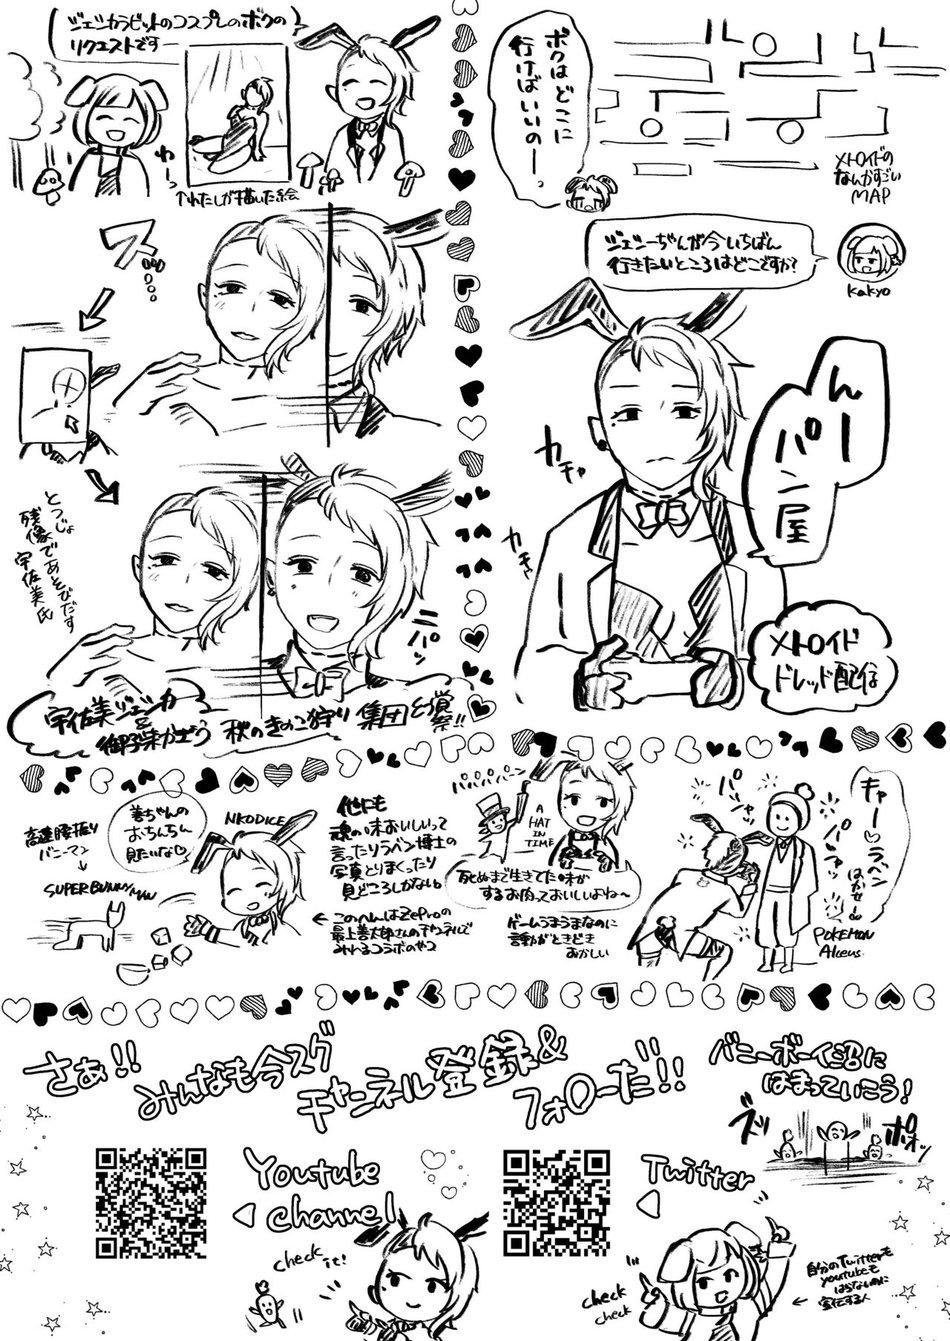 ジェシカラビットのコスプレのボクの
リクエストですー
わーっ
↑わたしが描いた絵
ス…
とつじょ
残像であそびだす
宇佐美氏
ニパッ
宇佐美ジェシカ
&
秋のきのこ狩り
ボクはどこに
行けばいいのー
メトロイドの
なんかすごい
MAP
ジェシーぢんが今いちばん
行きたいところはどこですか?
kakyo
んー
パン屋
カチャ
カチャ
メトロイド
ドレッド配信
高速腰振り
バニーマン
↓
SUPER BUNNY MAN
姜ちゃんの
おちんちん
見たいな♡
NKODICE
他にも
魂の味おいしいって
言ったりラベン博士の
写真とりまくったり
見どころしかない。
←このへんはZeproの
最上姜太郎さんのチャンネルで
みれるコラボのやつ
パパパパーン
A
HAT
IN
TIME
死ぬまで生きてた味が
するお肉っておいしいよね〜
ゲームうまうまなのに
言動がときどき
おかしい
パシャッ
パシャッ
キャー♡ラベン
はかせー♡
POKEMON
Alceus
さぁ!!
みんなも今スグ
チャンネル登録&
フォローだ!!
バニーボーイ沼に
はまっていこう!
ズッ
ポオッ
Youtube
◁channel
check it!
Twitter
◁
check
check
←自分のTwitterも
youtubeも
はらないのに
宣伝する人